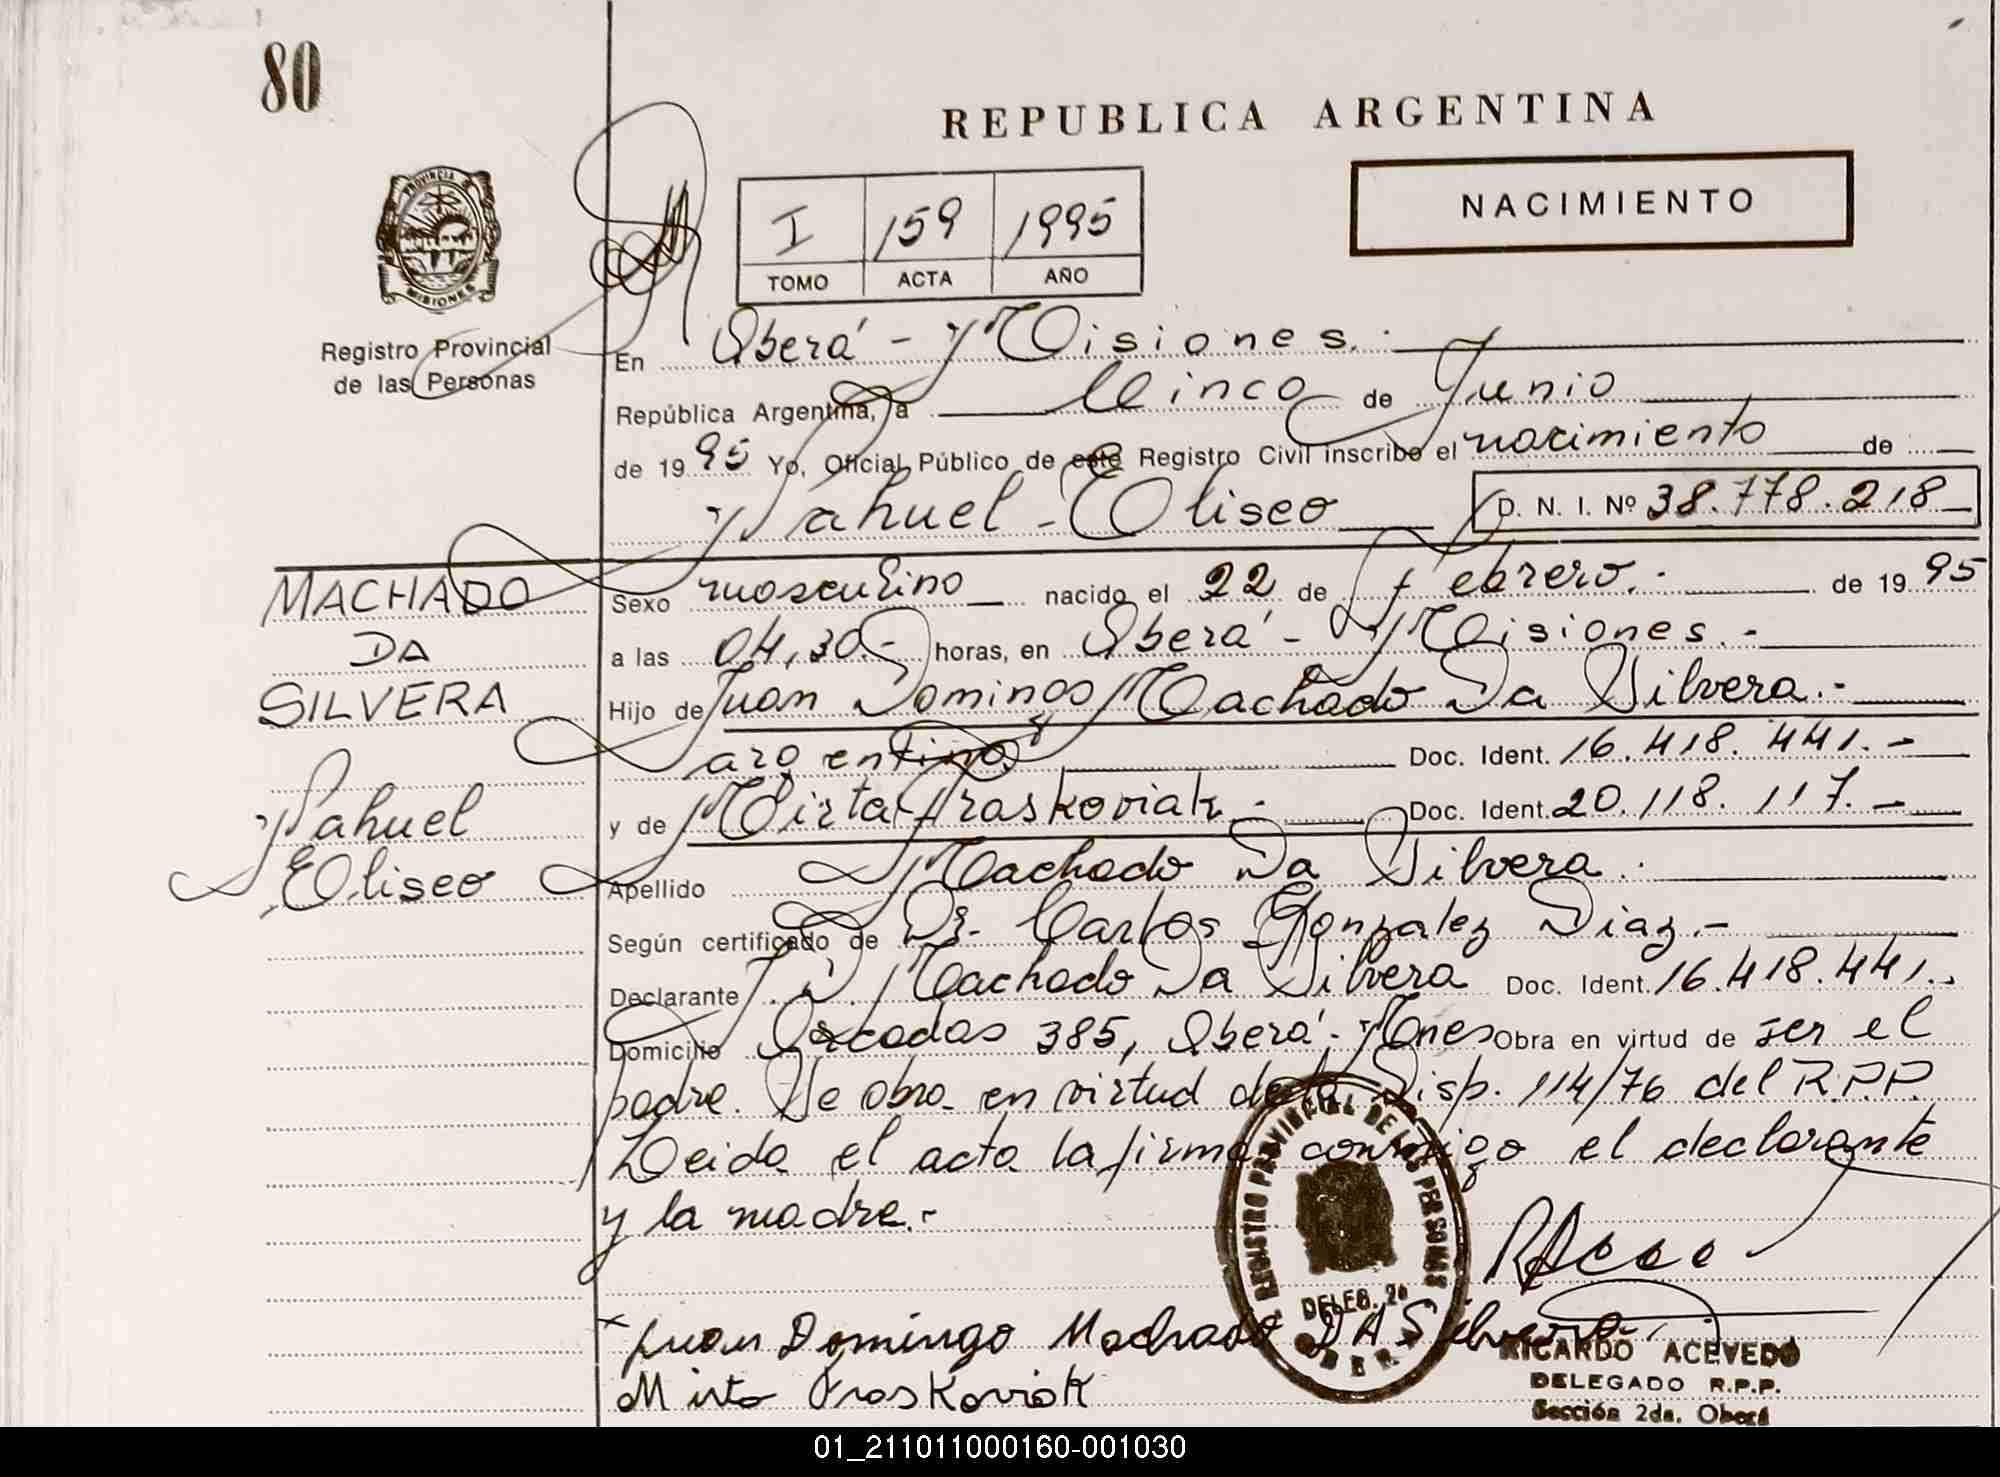 80
REPUBLICA ARGENTINA
PROVINCIA DE
MISIONES
Registro Provincial
de las Personas
I 159 1995
TOMO ACTA AÑO
NACIMIENTO
En Oberá - Misiones.-
República Argentina, a Cinco de Junio
de 1995 Yo, Oficial Público de este Registro Civil inscribo el nacimiento de
Nahuel - Eliseo D. N. I. Nº 38.778.218
MACHADO
DA
SILVERA
Nahuel
Eliseo
Sexo masculino nacido el 22 de febrero.- de 1995
a las 04,30.- horas, en Oberá - Misiones.-
Hijo de Juan Domingo Machado Da Silvera.-
argentino, Doc. Ident. 16.418.441.-
y de Mirta Fraskoviak.- Doc. Ident. 20.118.117.-
Apellido Machado Da Silvera.
Según certificado de Dr. Carlos Gonzalez Diaz.-
Declarante J. D. Machado Da Silvera Doc. Ident. 16.418.441.-
Domicilio 385, Oberá - Mnes Obra en virtud de ser el
padre. Se obra en virtud de la Disp. 114/76 del R.P.P.
Leida el acta la firma conmigo el declarante
y la madre.-
REGISTRO PROVINCIAL DE LAS PERSONAS
DELEG. 2a
OBERA
Juan Domingo Machado DA Silvera
Mirta Fraskoviak
RICARDO ACEVEDO
DELEGADO R.P.P.
Sección 2da. Oberá
01_211011000160-001030